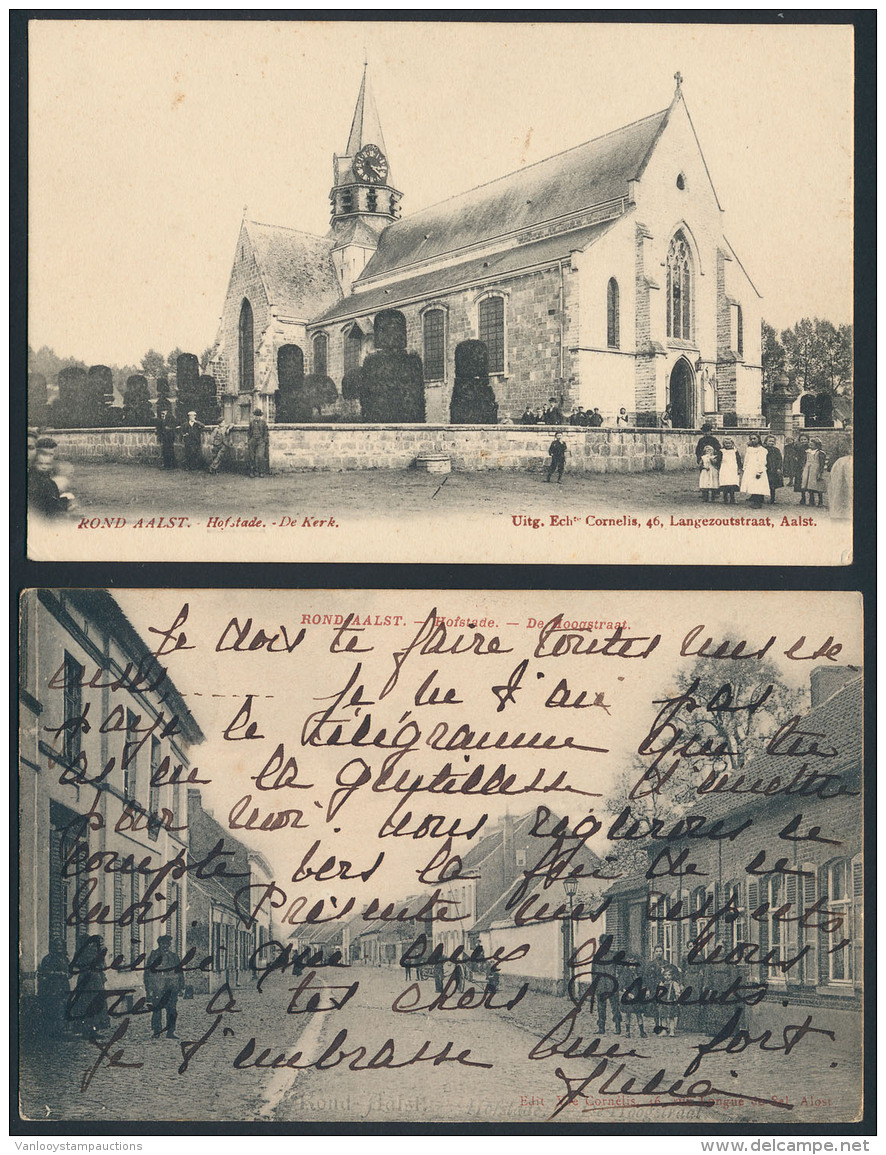 ROND AALST. - Hofstade. - De Kerk.
Uitg. Echte Cornelis, 46, Langezoutstraat, Aalst.
ROND AALST. — Hofstade. — De Hoogstraat.
Je dois te faire toutes mes ex
cuses Je ne t'ai pas
payé le télégramme que tu
as eu la gentillesse d'mettre
par moi. Nous réglerons ce
compte vers la fin de ce
mois. Présente mes respects
ainsi que ceux de nous
tous à tes chers Parents.
Je t'embrasse bien fort
Rond-Aalst Hoogstraat
Edit. Vve Cornelis, 46, rue Longue de Sel, Alost
Vanlooystampauctions
www.delcampe.net